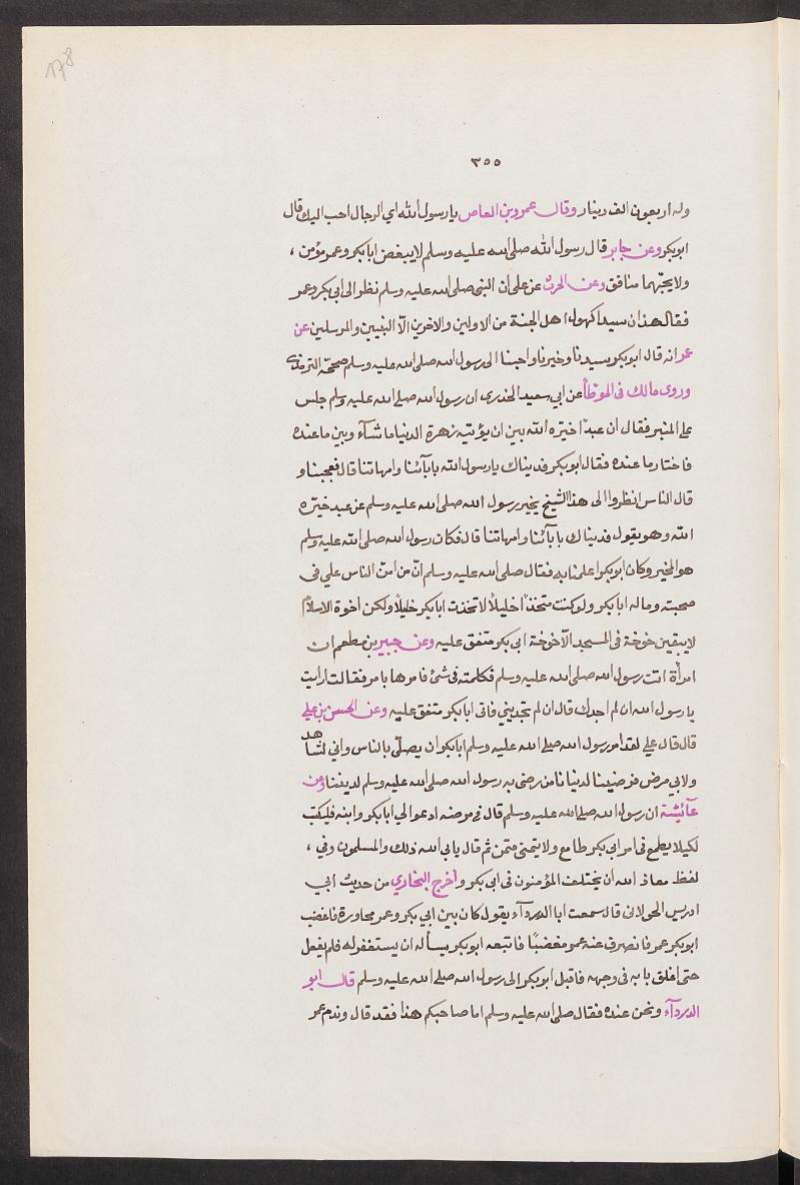 178
٣٥٥
وله اربعون الف دينار وقال عمرو بن العاص يارسول الله اي الرجال احب اليك قال
ابوبكر وعن جابر قال رسول الله صلى الله عليه وسلم لايبغض ابابكر وعمر مؤمن ،
ولا يحبهما منافق وعن الحرث عن على ان النبى صلى الله عليه وسلم نظر الى ابى بكر وعمر
فقال هذان سيدا كهول اهل الجنة من الاولين والاخرين الّا النبيين والمرسلين عن
عمر انه قال ابوبكر سيدنا وخيرنا واحبنا الى رسول الله صلى الله عليه وسلم صححّه الترمذى
وروى مالك فى الموطّأ عن ابي سعيد الخدرى ان رسول الله صلى الله عليه وسلم جلس
على المنبر فقال ان عبدًا خيّره الله بين ان يؤتيه زهرة الدنيا ما شآء وبين ما عنده
فاختار ما عنده فقال ابوبكر فديناك يارسول الله بابآئنا وامهاتنا قال فعجبنا و
قال الناس انظروا الى هذا الشيخ يخبر رسول الله صلى الله عليه وسلم عن عبد خيّره
الله وهو يقول فديناك بابآئنا وامهاتنا قال فكان رسول الله صلى الله عليه وسلم
هو المخير وكان ابوبكر اعلمنا به فقال صلى الله عليه وسلم انّ من امنّ الناس علي فى
صحبته وماله ابابكر ولوكنت متخذًا خليلًا لاتخذت ابابكر خليلًا ولكن اخوة الاسلام
لايبقين خوخة فى المسجد الّا خوخة ابى بكر متفق عليه وعن جبير بن مطعم ان
امرأة اتت رسول الله صلى الله عليه وسلم فكلمته فى شئ فامرها بامر فقالت ارايت
يارسول الله ان لم اجدك قال ان لم تجديني فاتى ابابكر متفق عليه وعن الحسن بن على
قال قال علي لقد امر رسول الله صلى الله عليه وسلم ابابكر ان يصلّى بالناس واني لشاهد
ولا بي مرض فرضينا لدنيانا من رضى به رسول الله صلى الله عليه وسلم لديننا وعن
عآئشة ان رسول الله صلى الله عليه وسلم قال فى مرضه ادعوا لي ابابكر وابنه فليكتب
لكيلا يطمع فى امر ابى بكر طامع ولا يتمنى متمن ثم قال يابى الله ذلك والمسلمون وفي ،
لفظ معاذ الله ان يختلف المؤمنون فى ابى بكر واخرج البخاري من حديث ابي
ادريس الخولانى قال سمعت ابا الدردآء يقول كان بين ابي بكر وعمر محاورة فاغضب
ابوبكر عمر فانصرف عنه عمر مغضبًا فاتبعه ابوبكر يسأله ان يستغفر له فلم يفعل
حتى اغلق بابه فى وجهه فاقبل ابوبكر الى رسول الله صلى الله عليه وسلم قال ابو
الدردآء ونحن عنده فقال صلى الله عليه وسلم اما صاحبكم هذا فقد قال وندم عمر